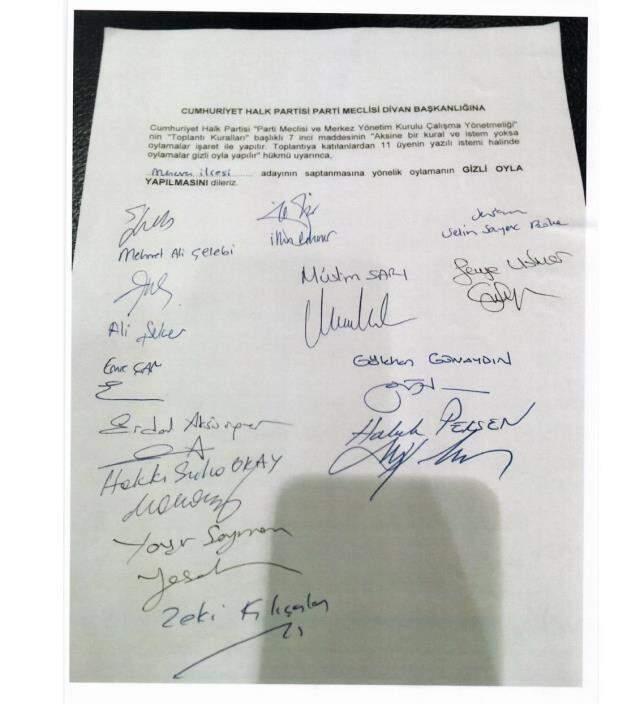 CUMHURİYET HALK PARTİSİ PARTİ MECLİSİ DİVAN BAŞKANLIĞINA
Cumhuriyet Halk Partisi "Parti Meclisi ve Merkez Yönetim Kurulu Çalışma Yönetmeliği"
'nin "Toplantı Kuralları" başlıklı 7 inci maddesinin "Aksine bir kural ve istem yoksa
oylamalar işaret ile yapılır. Toplantıya katılanlardan 11 üyenin yazılı istemi halinde
oylamalar gizli oyla yapılır" hükmü uyarınca,
ilçesi adayının saptanmasına yönelik oylamanın GİZLİ OYLA
YAPILMASINI dileriz.
Mehmet Ali Çelebi
Selin Sayek Böke
Müslim SARI
Ali Şeker
Gökhan GÜNAYDIN
Erdal Aksünger
Haluk PEKŞEN
Hakkı Süha OKAY
Yaşar Seyman
Zeki Kılıçaslan